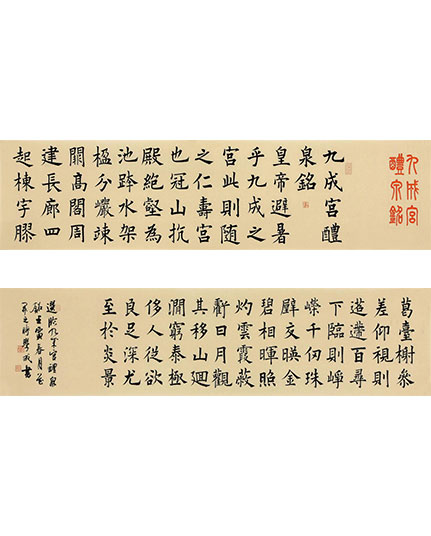 九成宮
醴泉銘
九成宮醴
泉銘
皇帝避暑
乎九成之
宮此則随
之仁壽宮
也冠山抗
殿絶壑為
池跨水架
楹分巖竦
闕髙閣周
建長廊四
起棟宇膠
葛臺榭參
差仰視則
迢遰百尋
下臨則崢
嶸千仞珠
壁交暎金
碧相暉照
灼雲霞蔽
虧日月觀
其移山迴
澗窮泰極
侈人從欲
良足深尤
至於炎景
選臨九成宮醴泉
銘壬寅春月
書